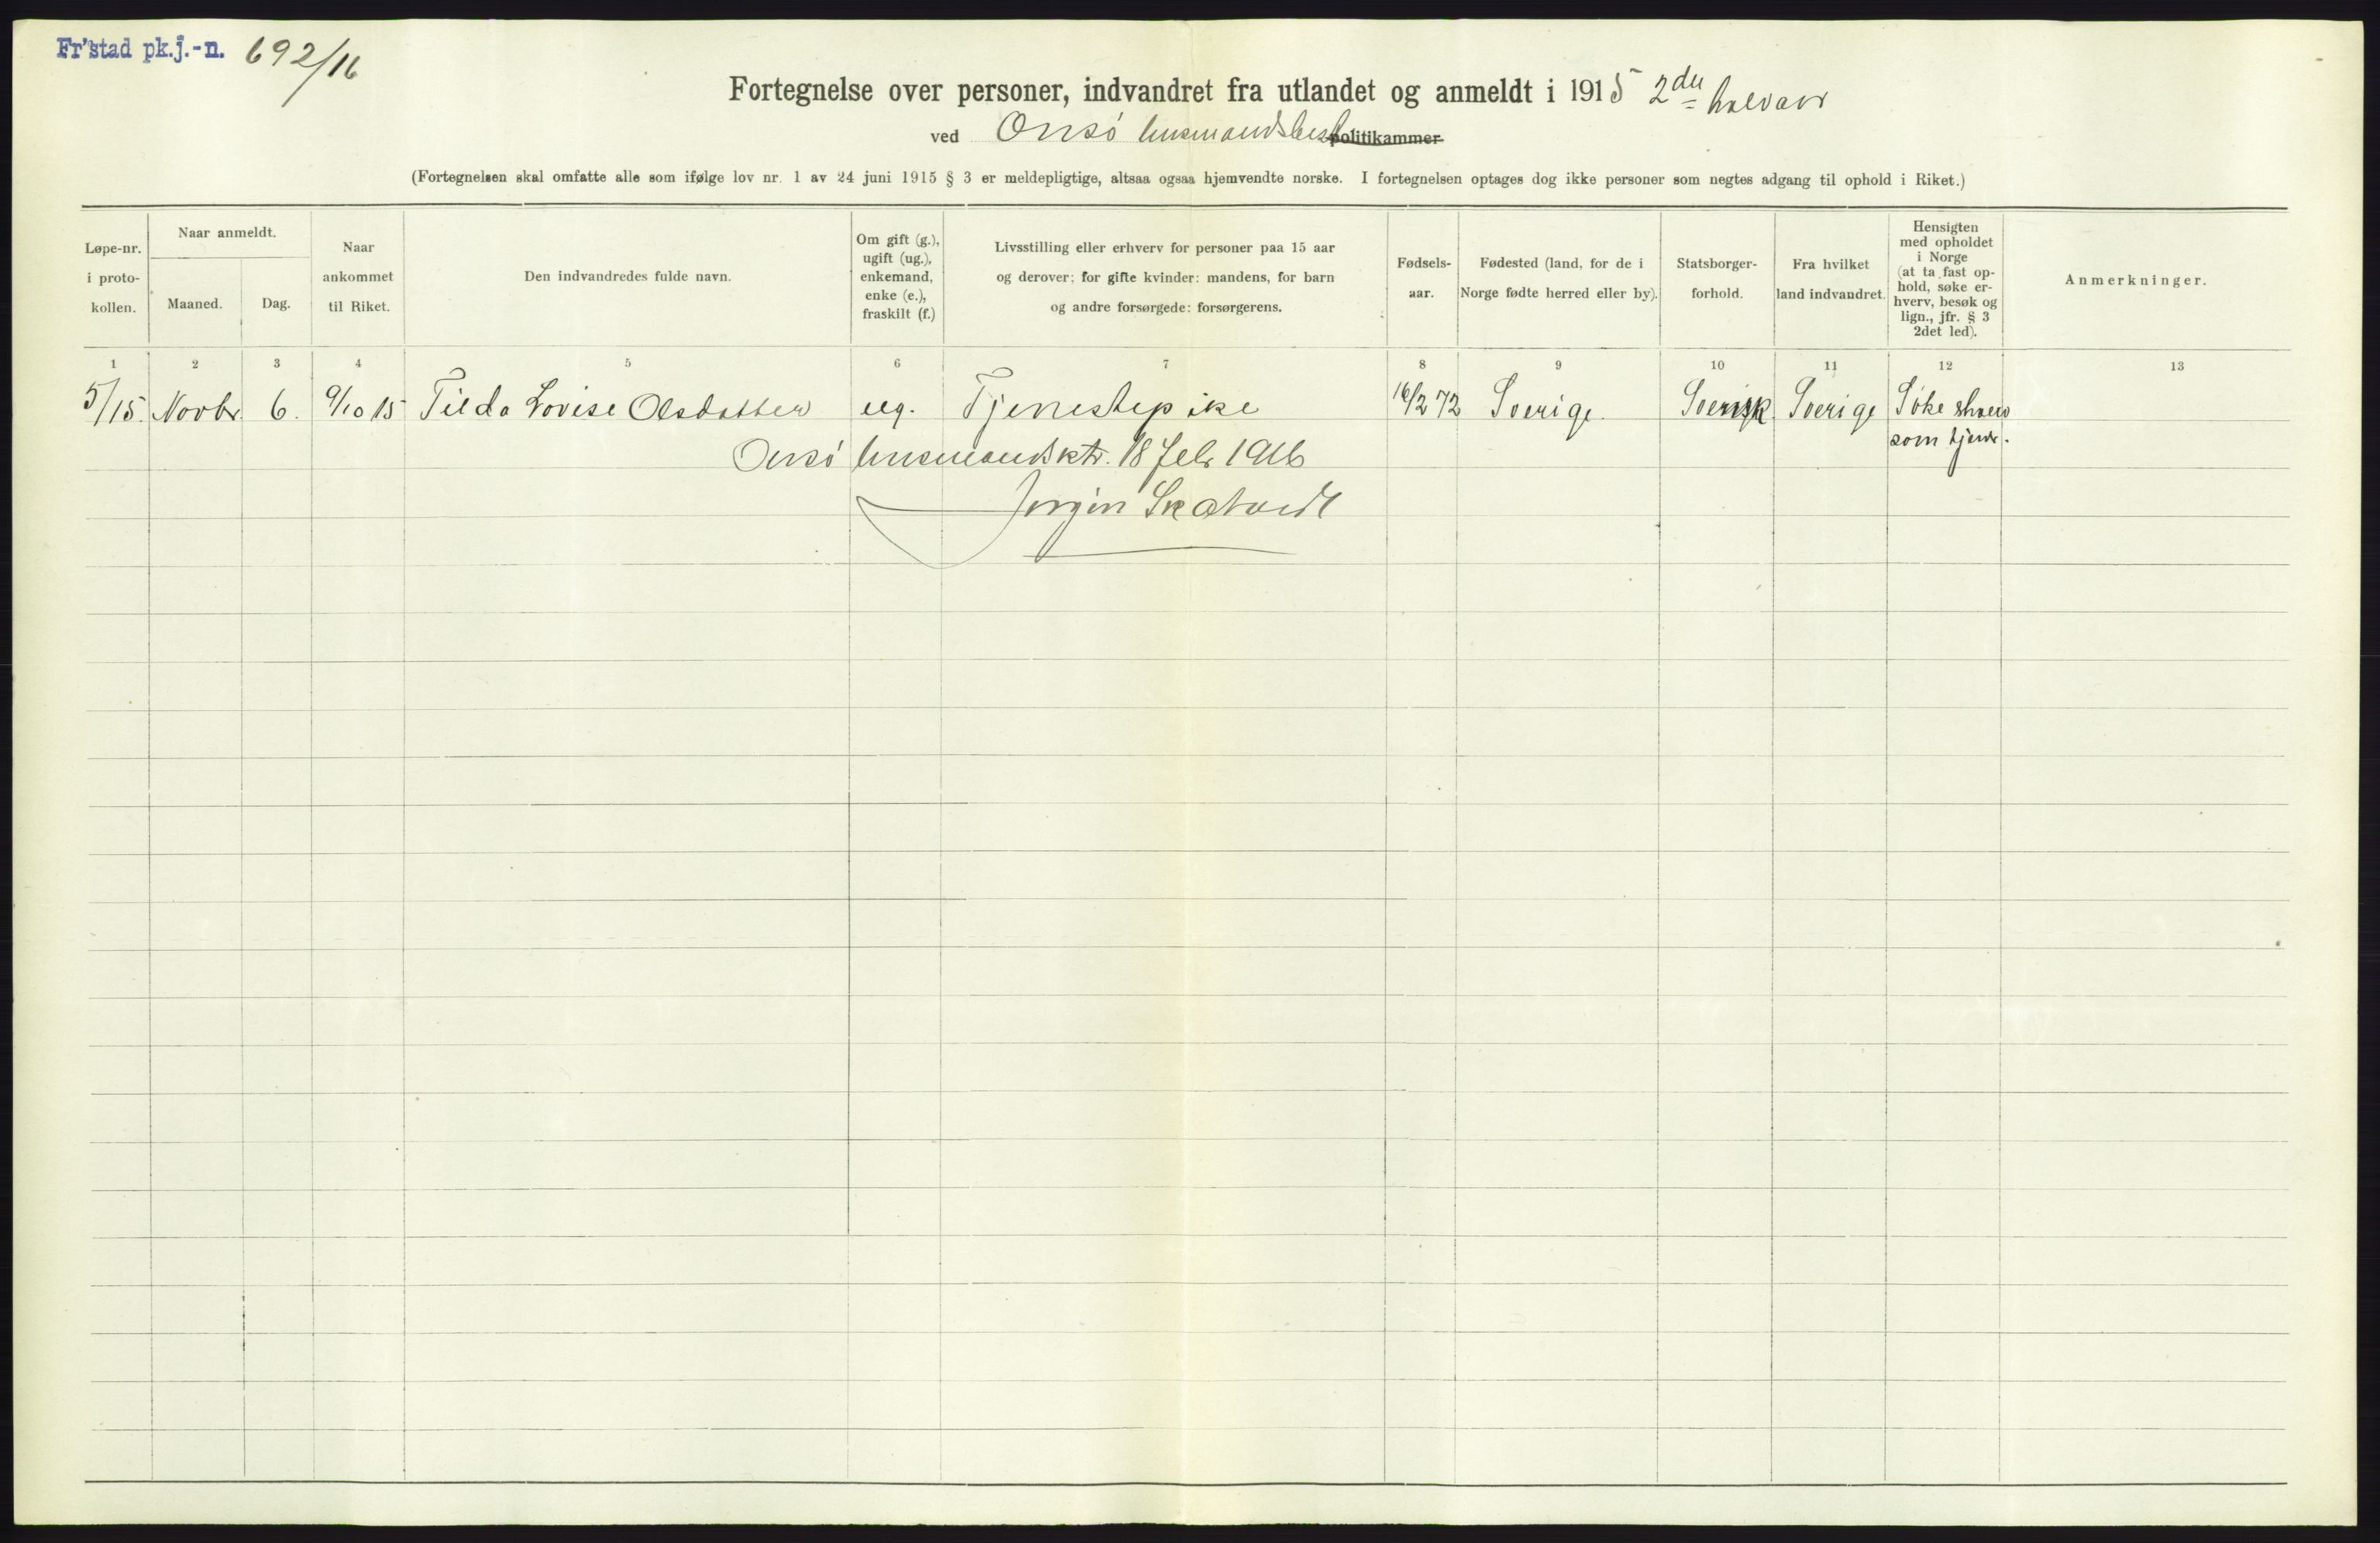 Fr'stad pk.j.-n. 692/16
Fortegnelse over personer, indvandret fra utlandet og anmeldt i 1915 2det halvaar
ved Onsø lensmandsbest politikammer
(Fortegnelsen skal omfatte alle som ifølge lov nr. 1 av 24 juni 1915 § 3 er meldepligtige, altsaa ogsaa hjemvendte norske. I fortegnelsen optages dog ikke personer som negtes adgang til ophold i Riket.)
Løpe-nr.
i proto-
kollen.
Naar anmeldt.
Maaned.
Dag.
Naar
ankommet
til Riket.
Den indvandredes fulde navn.
Om gift (g.),
ugift (ug.),
enkemand,
enke (e.),
fraskilt (f.)
Livsstilling eller erhverv for personer paa 15 aar
og derover; for gifte kvinder: mandens, for barn
og andre forsørgede: forsørgerens.
Fødsels-
aar.
Fødested (land, for de i
Norge fødte herred eller by).
Statsborger-
forhold.
Fra hvilket
land indvandret.
Hensigten
med opholdet
i Norge
(at ta fast op-
hold, søke er-
hverv, besøk og
lign., jfr. § 3
2det led).
Anmerkninger.
1 2 3 4 5 6 7 8 9 10 11 12 13
5/15. Novbr. 6. 9/10 15 Tilda Lovise Olsdatter ug. Tjenestepike 16/2 72 Sverige. Svensk Sverige Søke erhverv
som tjener.
Onsø lensmandsktr. 18 febr 1916
Jørgen